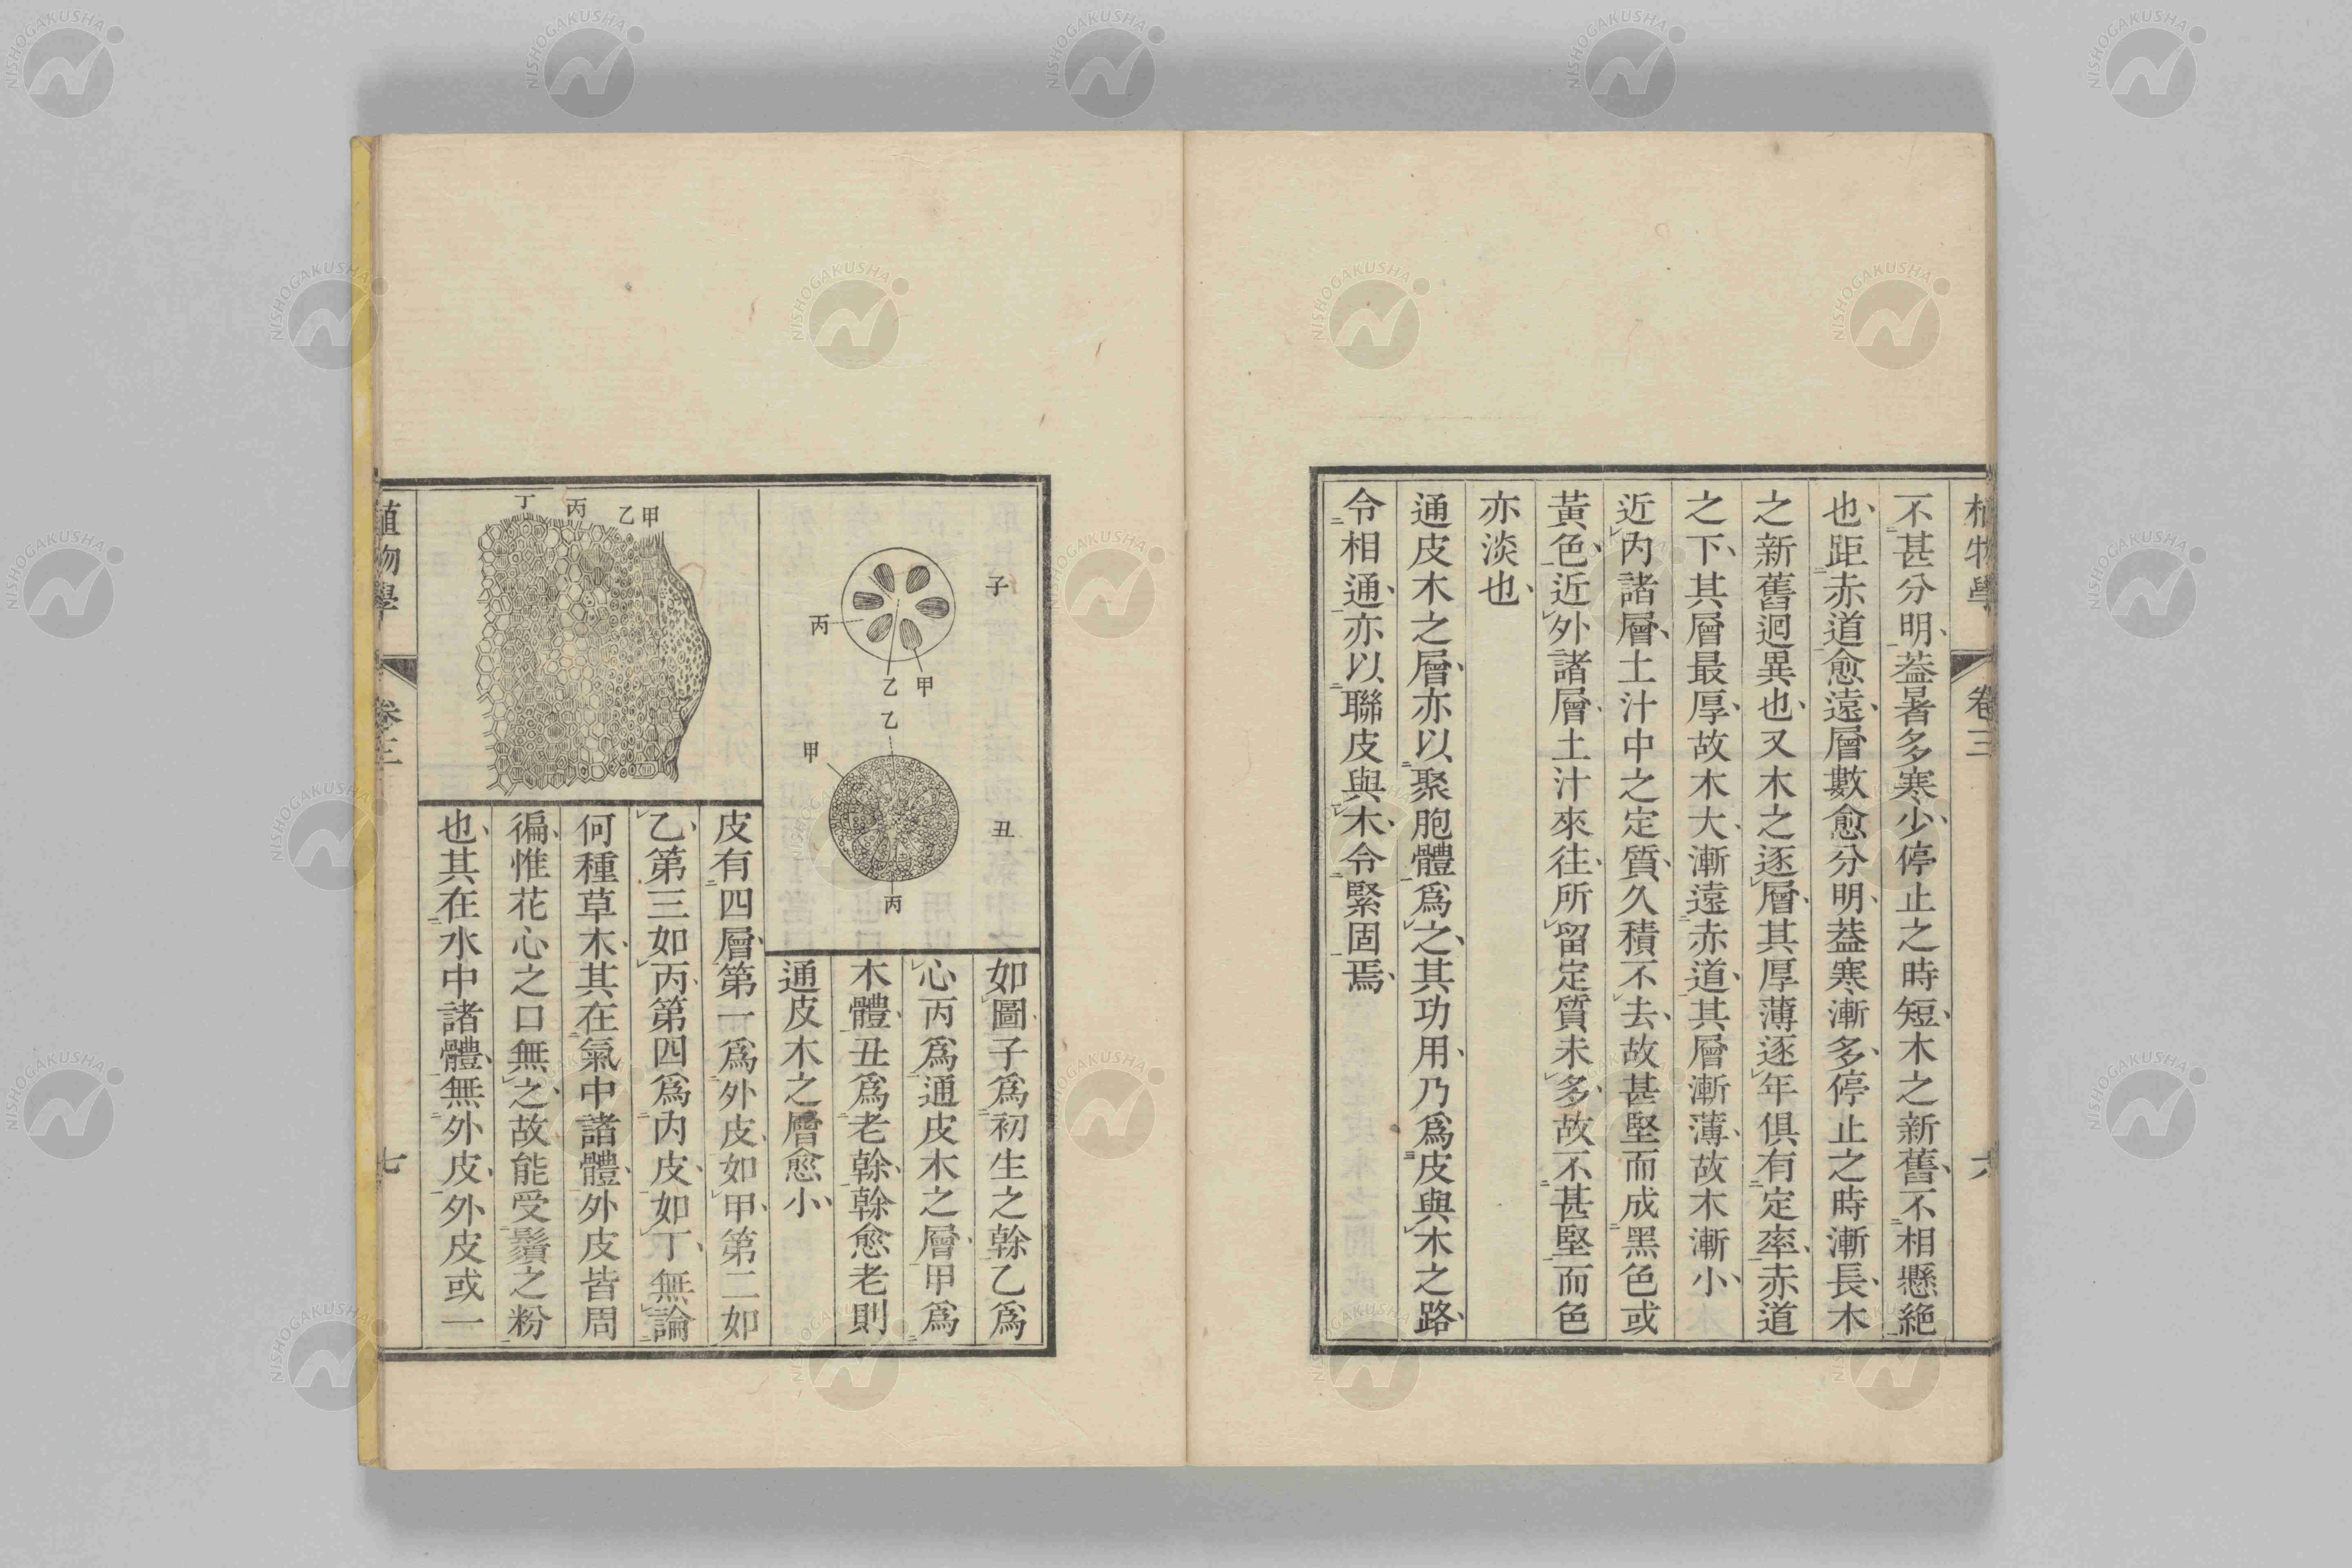 植物學 卷三 六
不甚分明、葢暑多寒少、停止之時短、木之新舊、不相懸絶
也、距赤道愈遠、層數愈分明、葢寒漸多、停止之時漸長、木
之新舊迥異也、又木之逐層、其厚薄逐年俱有定率、赤道
之下、其層最厚、故木大、漸遠赤道、其層漸薄、故木漸小、
近內諸層、土汁中之定質、久積不去、故甚堅而成黑色或
黃色、近外諸層、土汁來往、所留定質未多、故不甚堅而色
亦淡也、
通皮木之層、亦以聚胞體爲之、其功用、乃爲皮與木之路、
令相通、亦以聯皮與木、令緊固焉、
子
丙
乙
甲
丑
乙
甲
丙
如圖子爲初生之榦乙爲
心丙爲通皮木之層、甲爲
木體、丑爲老榦、榦愈老則
通皮木之層愈小、
甲
乙
丙
丁
皮有四層、第一爲外皮、如甲、第二如
乙、第三如丙、第四爲內皮、如丁、無論
何種草木、其在氣中諸體、外皮皆周
徧、惟花心之口無之、故能受鬚之粉
也、其在水中諸體、無外皮、外皮或一
植物學 卷三 七
NISHOGAKUSHA